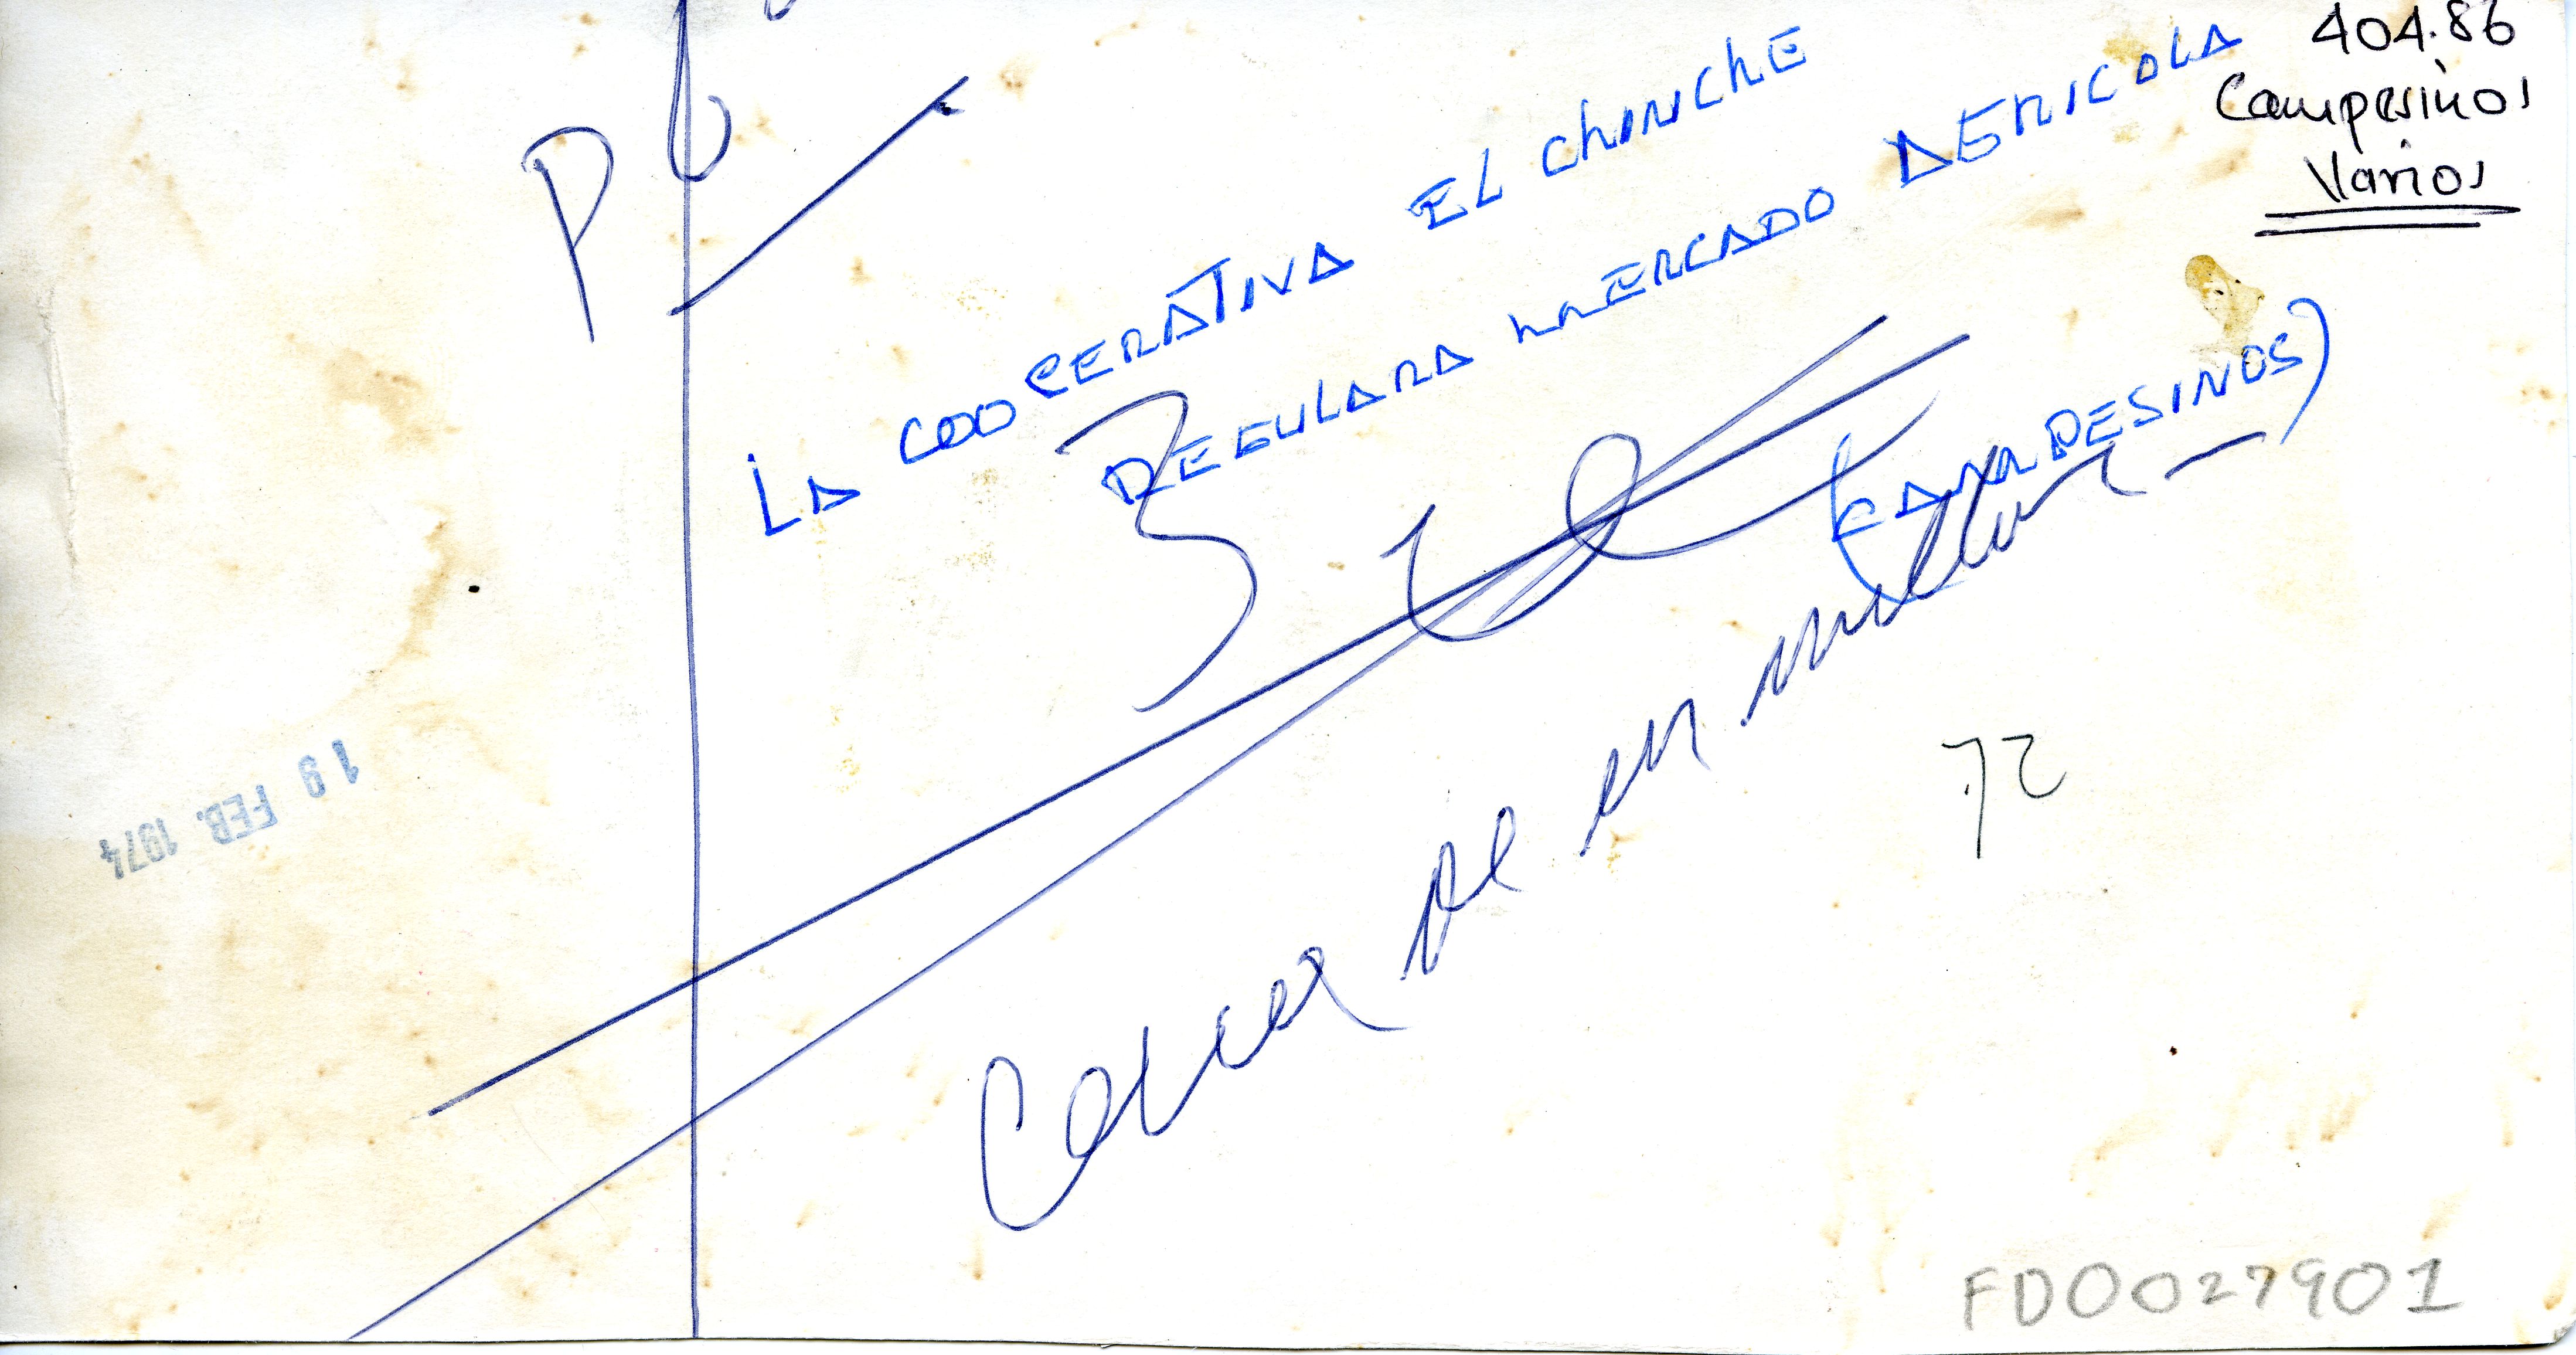 404.86
Campesinos
Varios
P 6
LA COOPERATIVA EL CHINCHE
REGULARA MERCADO AGRICOLA
(CAMPESINOS)
3
72
19 FEB. 1974
FD0027901